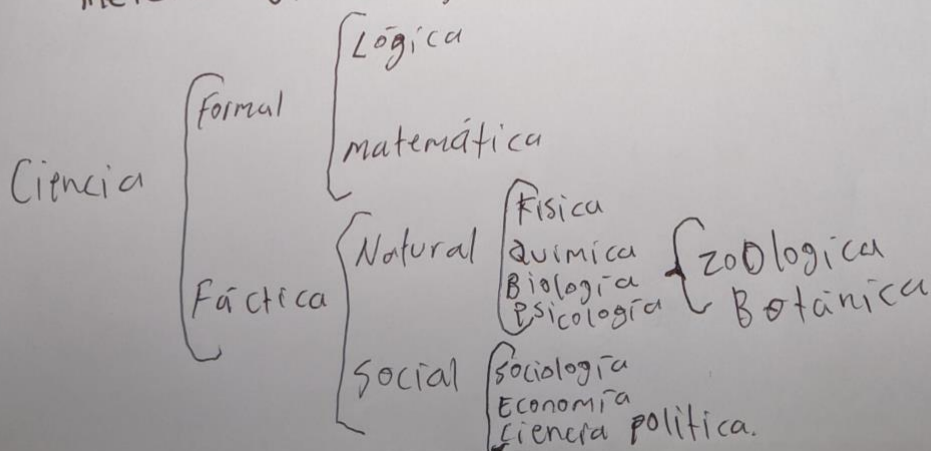 Ciencia
Formal
Lógica
matemática
Fáctica
Natural
Física
Química
Biología
Psicología
zoologica
Botánica
Social
Sociología
Economía
Ciencia política.